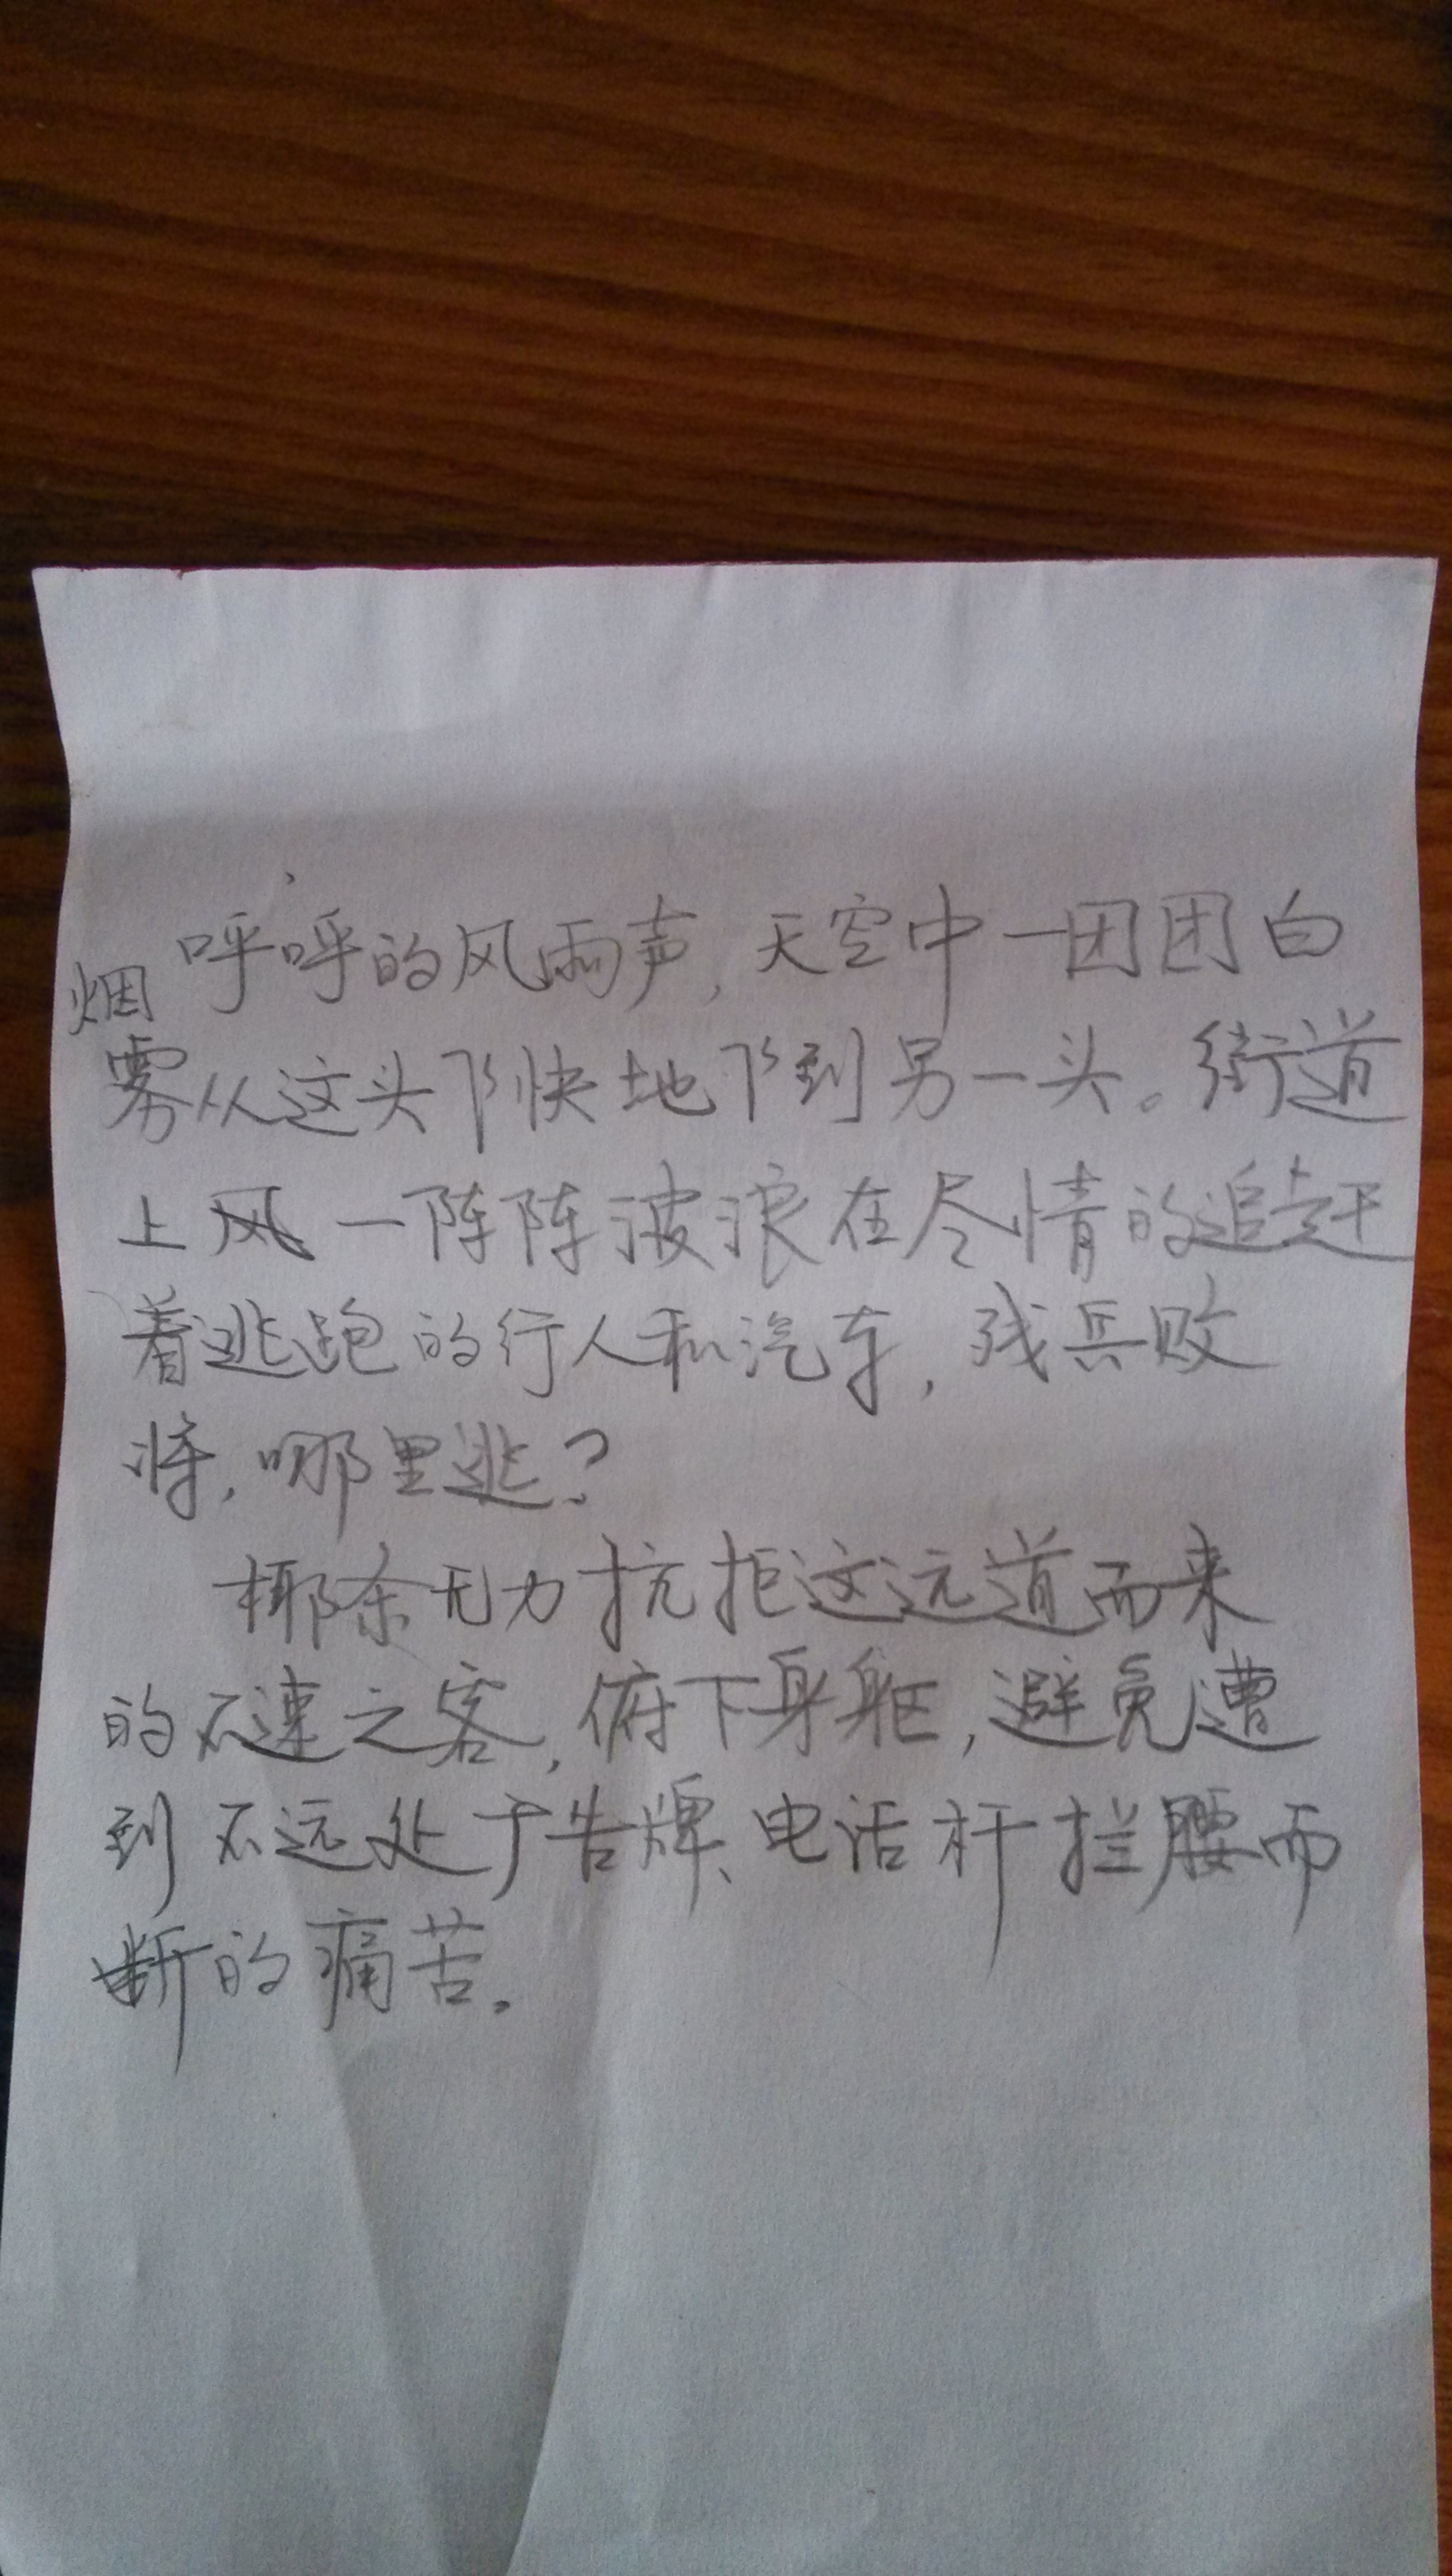 呼呼的风雨声,天空中一团团白
烟
雾从这头飞快地飞到另一头。街道
上风一阵阵波浪在尽情的追赶
着逃跑的行人和汽车,残兵败
将,哪里逃?
椰余无力抗拒这远道而来
的不速之客,俯下身躯,避免遭
到不远处广告牌、电话杆拦腰而
断的痛苦。